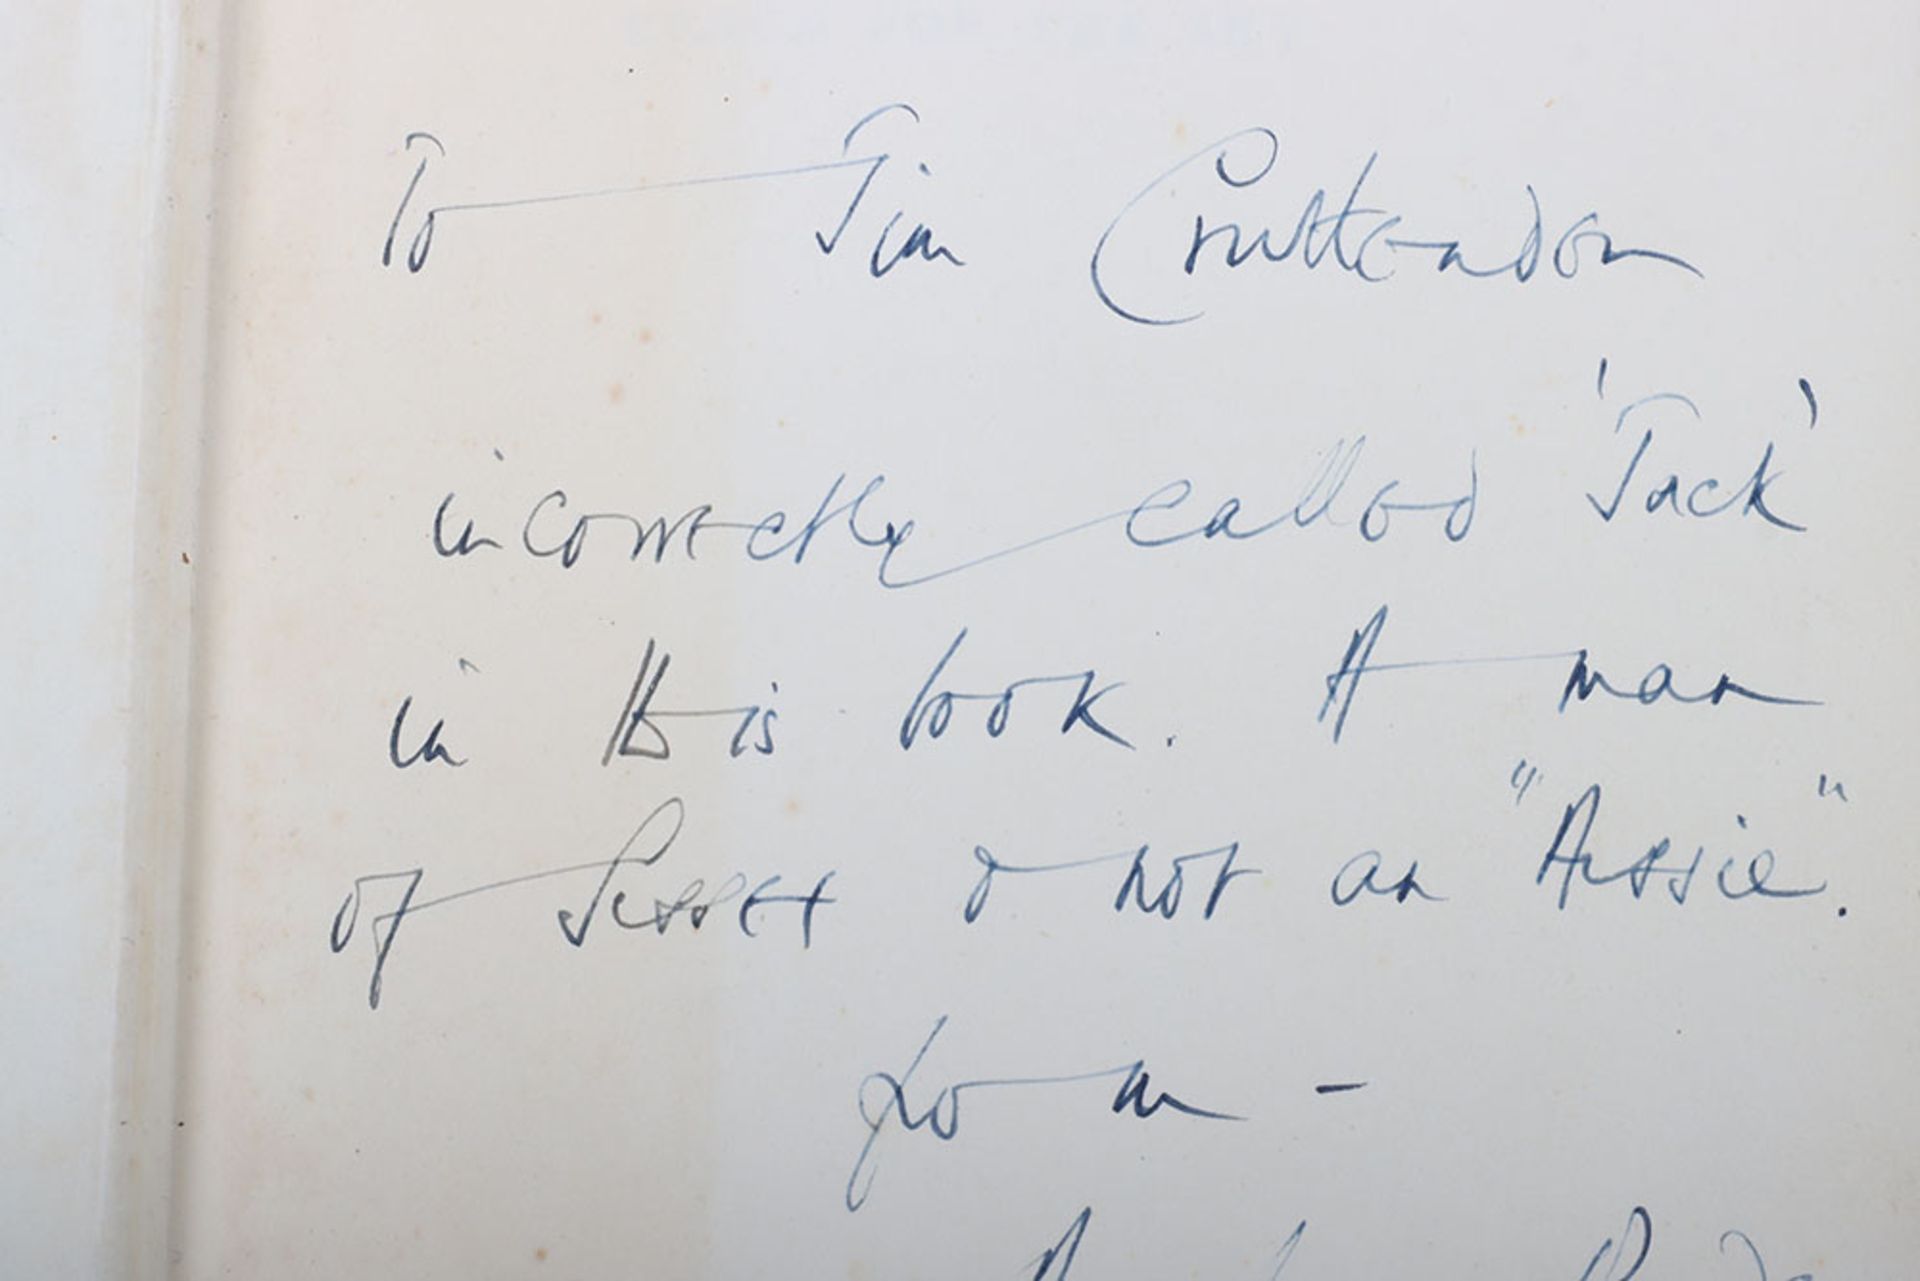 To Jim Cruttenden
incorrectly called 'Jack'
in this book. A man
of Sussex & not an "Aussie".
from –